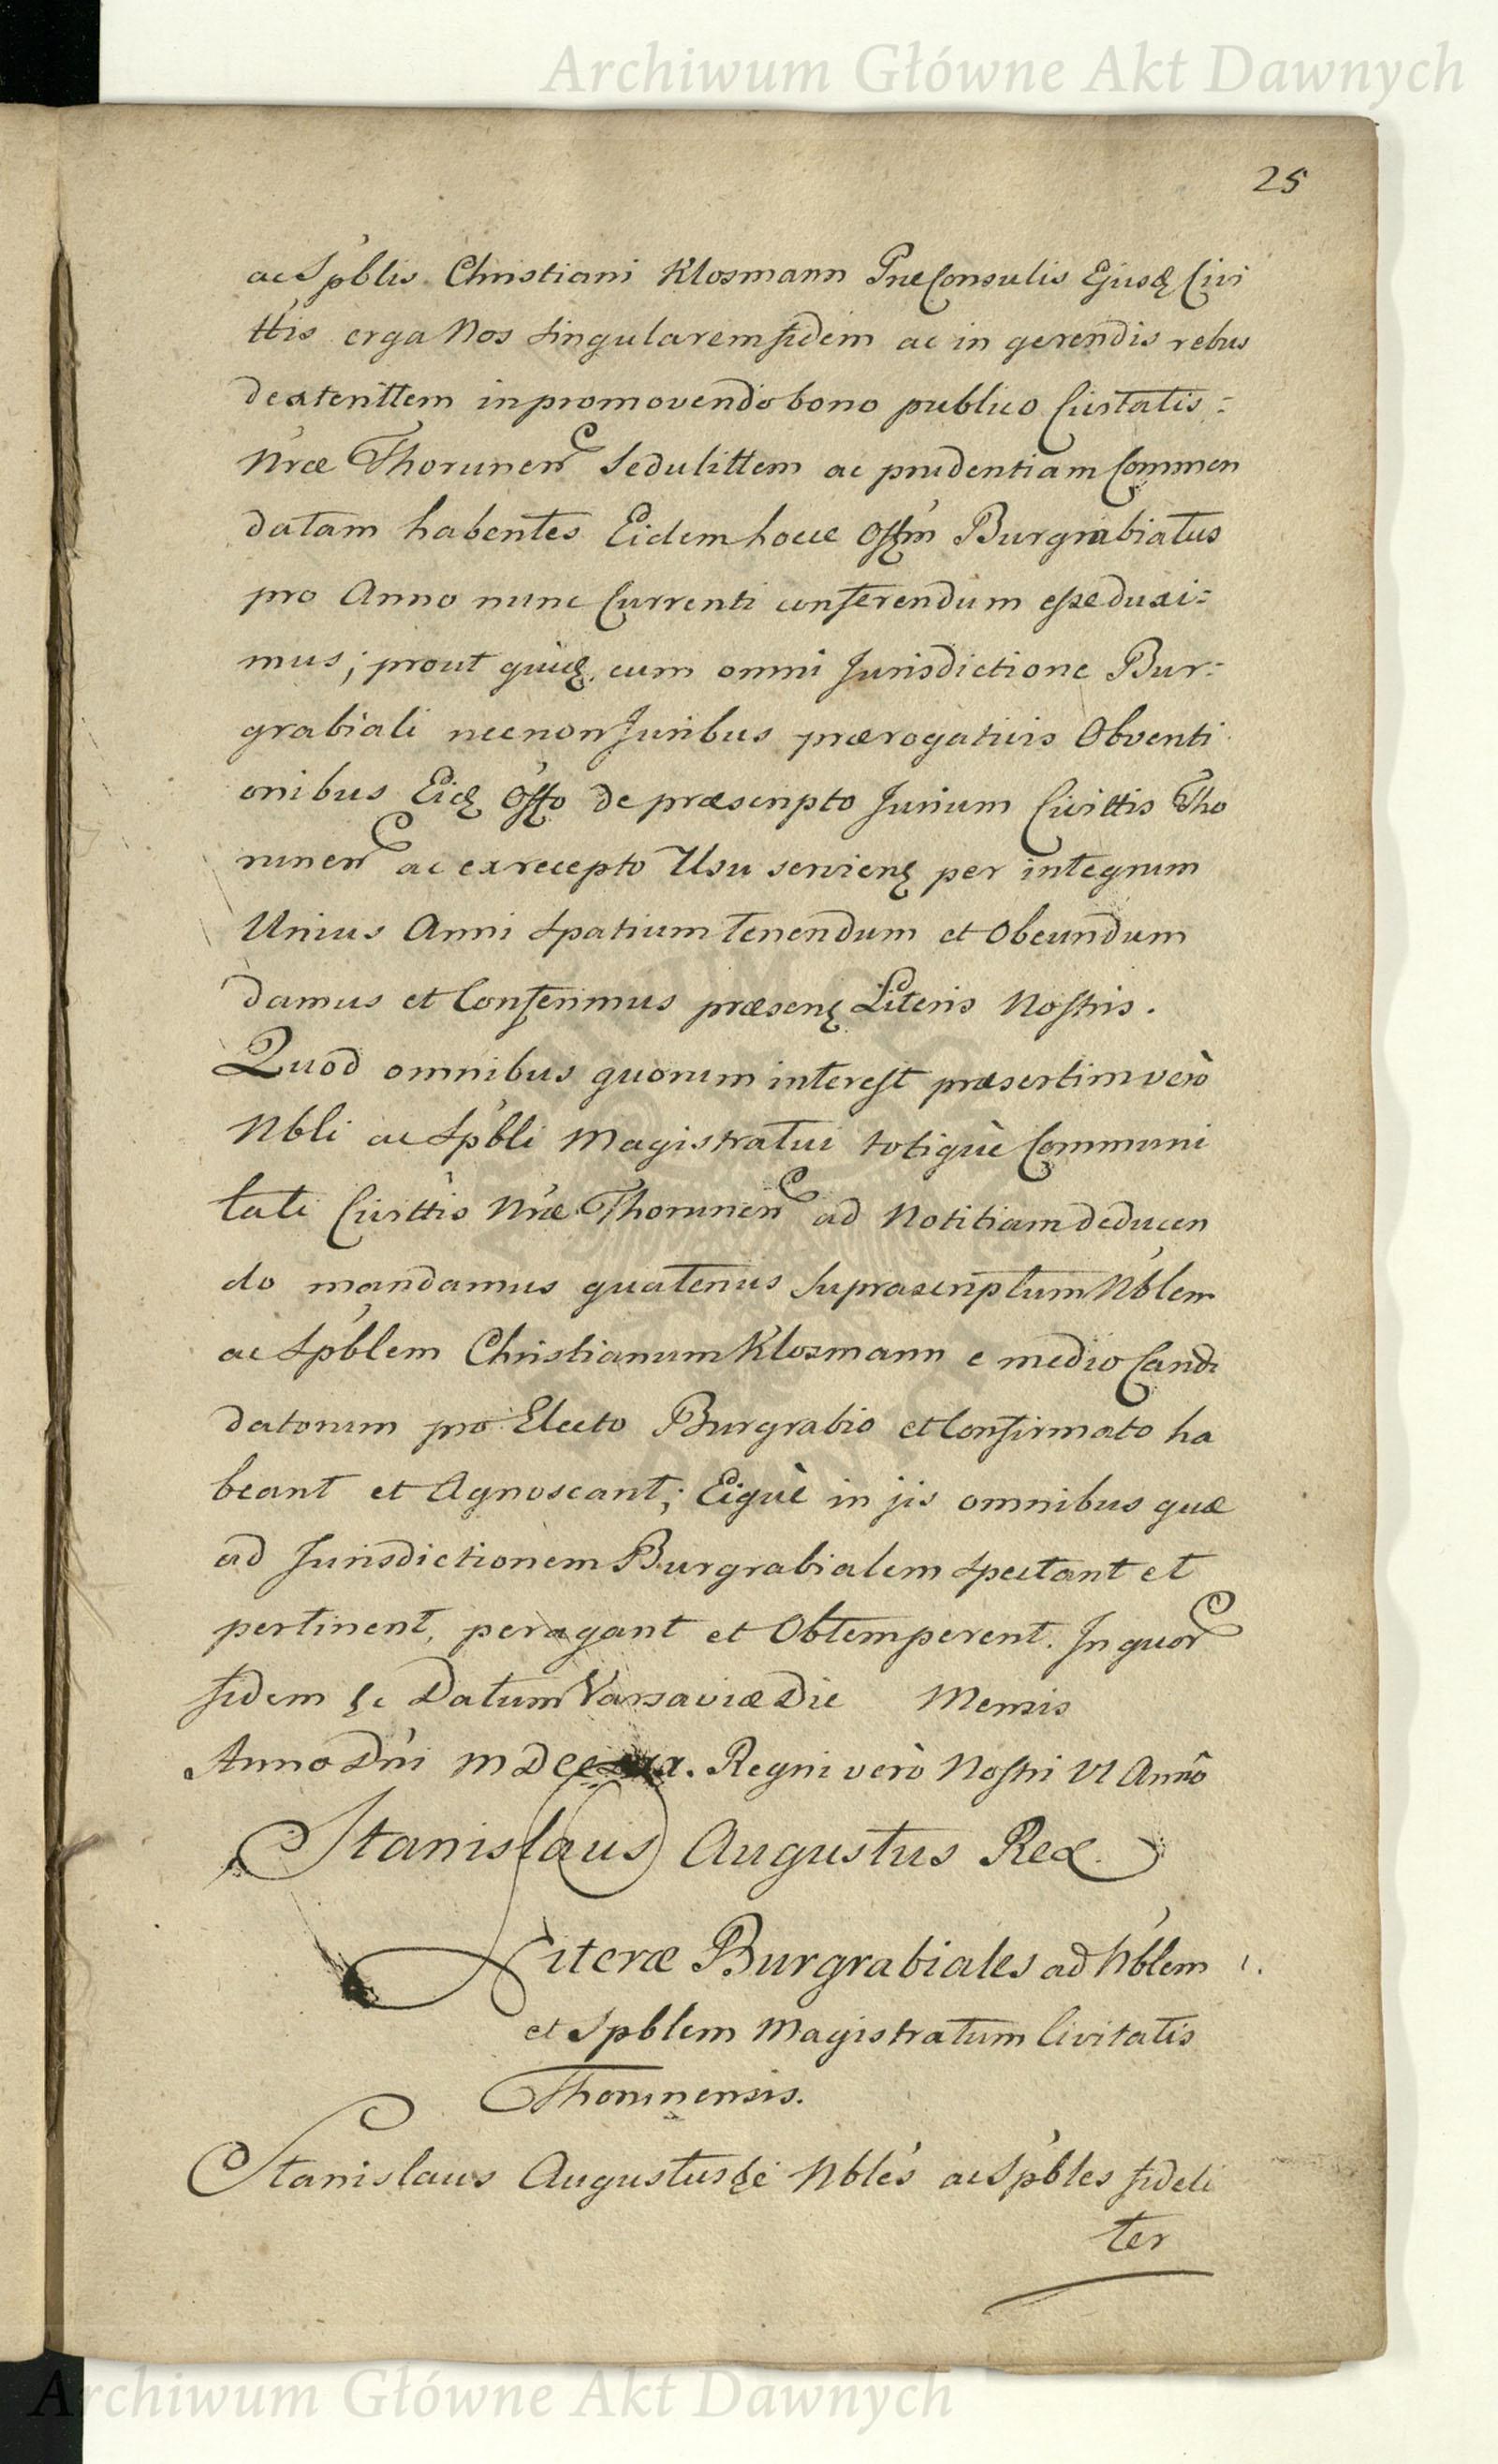 Archiwum Główne Akt Dawnych
25
ac Spblis Christiani Klosmann PræConsulis Ejusq Civi
ttis erga Nos singularem fidem ac in gerendis rebus
dexterittem in promovendo bono publico Civitatis =
Nræ Thorunen Sedulittem ac prudentiam Commen
datam habentes Eidem hocce Offm Burgrabiatus
pro Anno nunc Currenti conferendum esse duxi=
mus; prout quidq. cum omni Jurisdictione Bur=
grabiali necnon Juribus prærogativis Obventi
onibus Eidq Offo de præscripto Jurium Civittis Tho
runen ac ex recepto Usu servienq per integrum
Unius Anni Spatium tenendum et Obeundum
damus et Conferimus præsenq Literis Nostris.
Quod omnibus quorum interest præsertim verò
Nbli ac Spbli Magistratui totiquè Communi
tati Civittis Nræ Thorunen ad Notitiam deducen
do mandamus quatenus Suprascriptum Nblem
ac Spblem Christianum Klosmann e medio Candi
datorum pro Electo Burgrabio et Confirmato ha
beant et Agnoscant; Eiquè in jis omnibus quæ
ad Jurisdictionem Burgrabialem Spectant et
pertinent, peragant et Obtemperent. In quor
fidem &c Datum Varsaviæ Die Mensis
Anno Dni MDCC Regni verò Nostri VI Anno
Stanislaus Augustus Rex
Literæ Burgrabiales ad Nblem
et Spblem Magistratum Civitatis
Thorunensis.
Stanislaus Augustus &c Nbles ac Spbles fideli
ter
Archiwum Główne Akt Dawnych